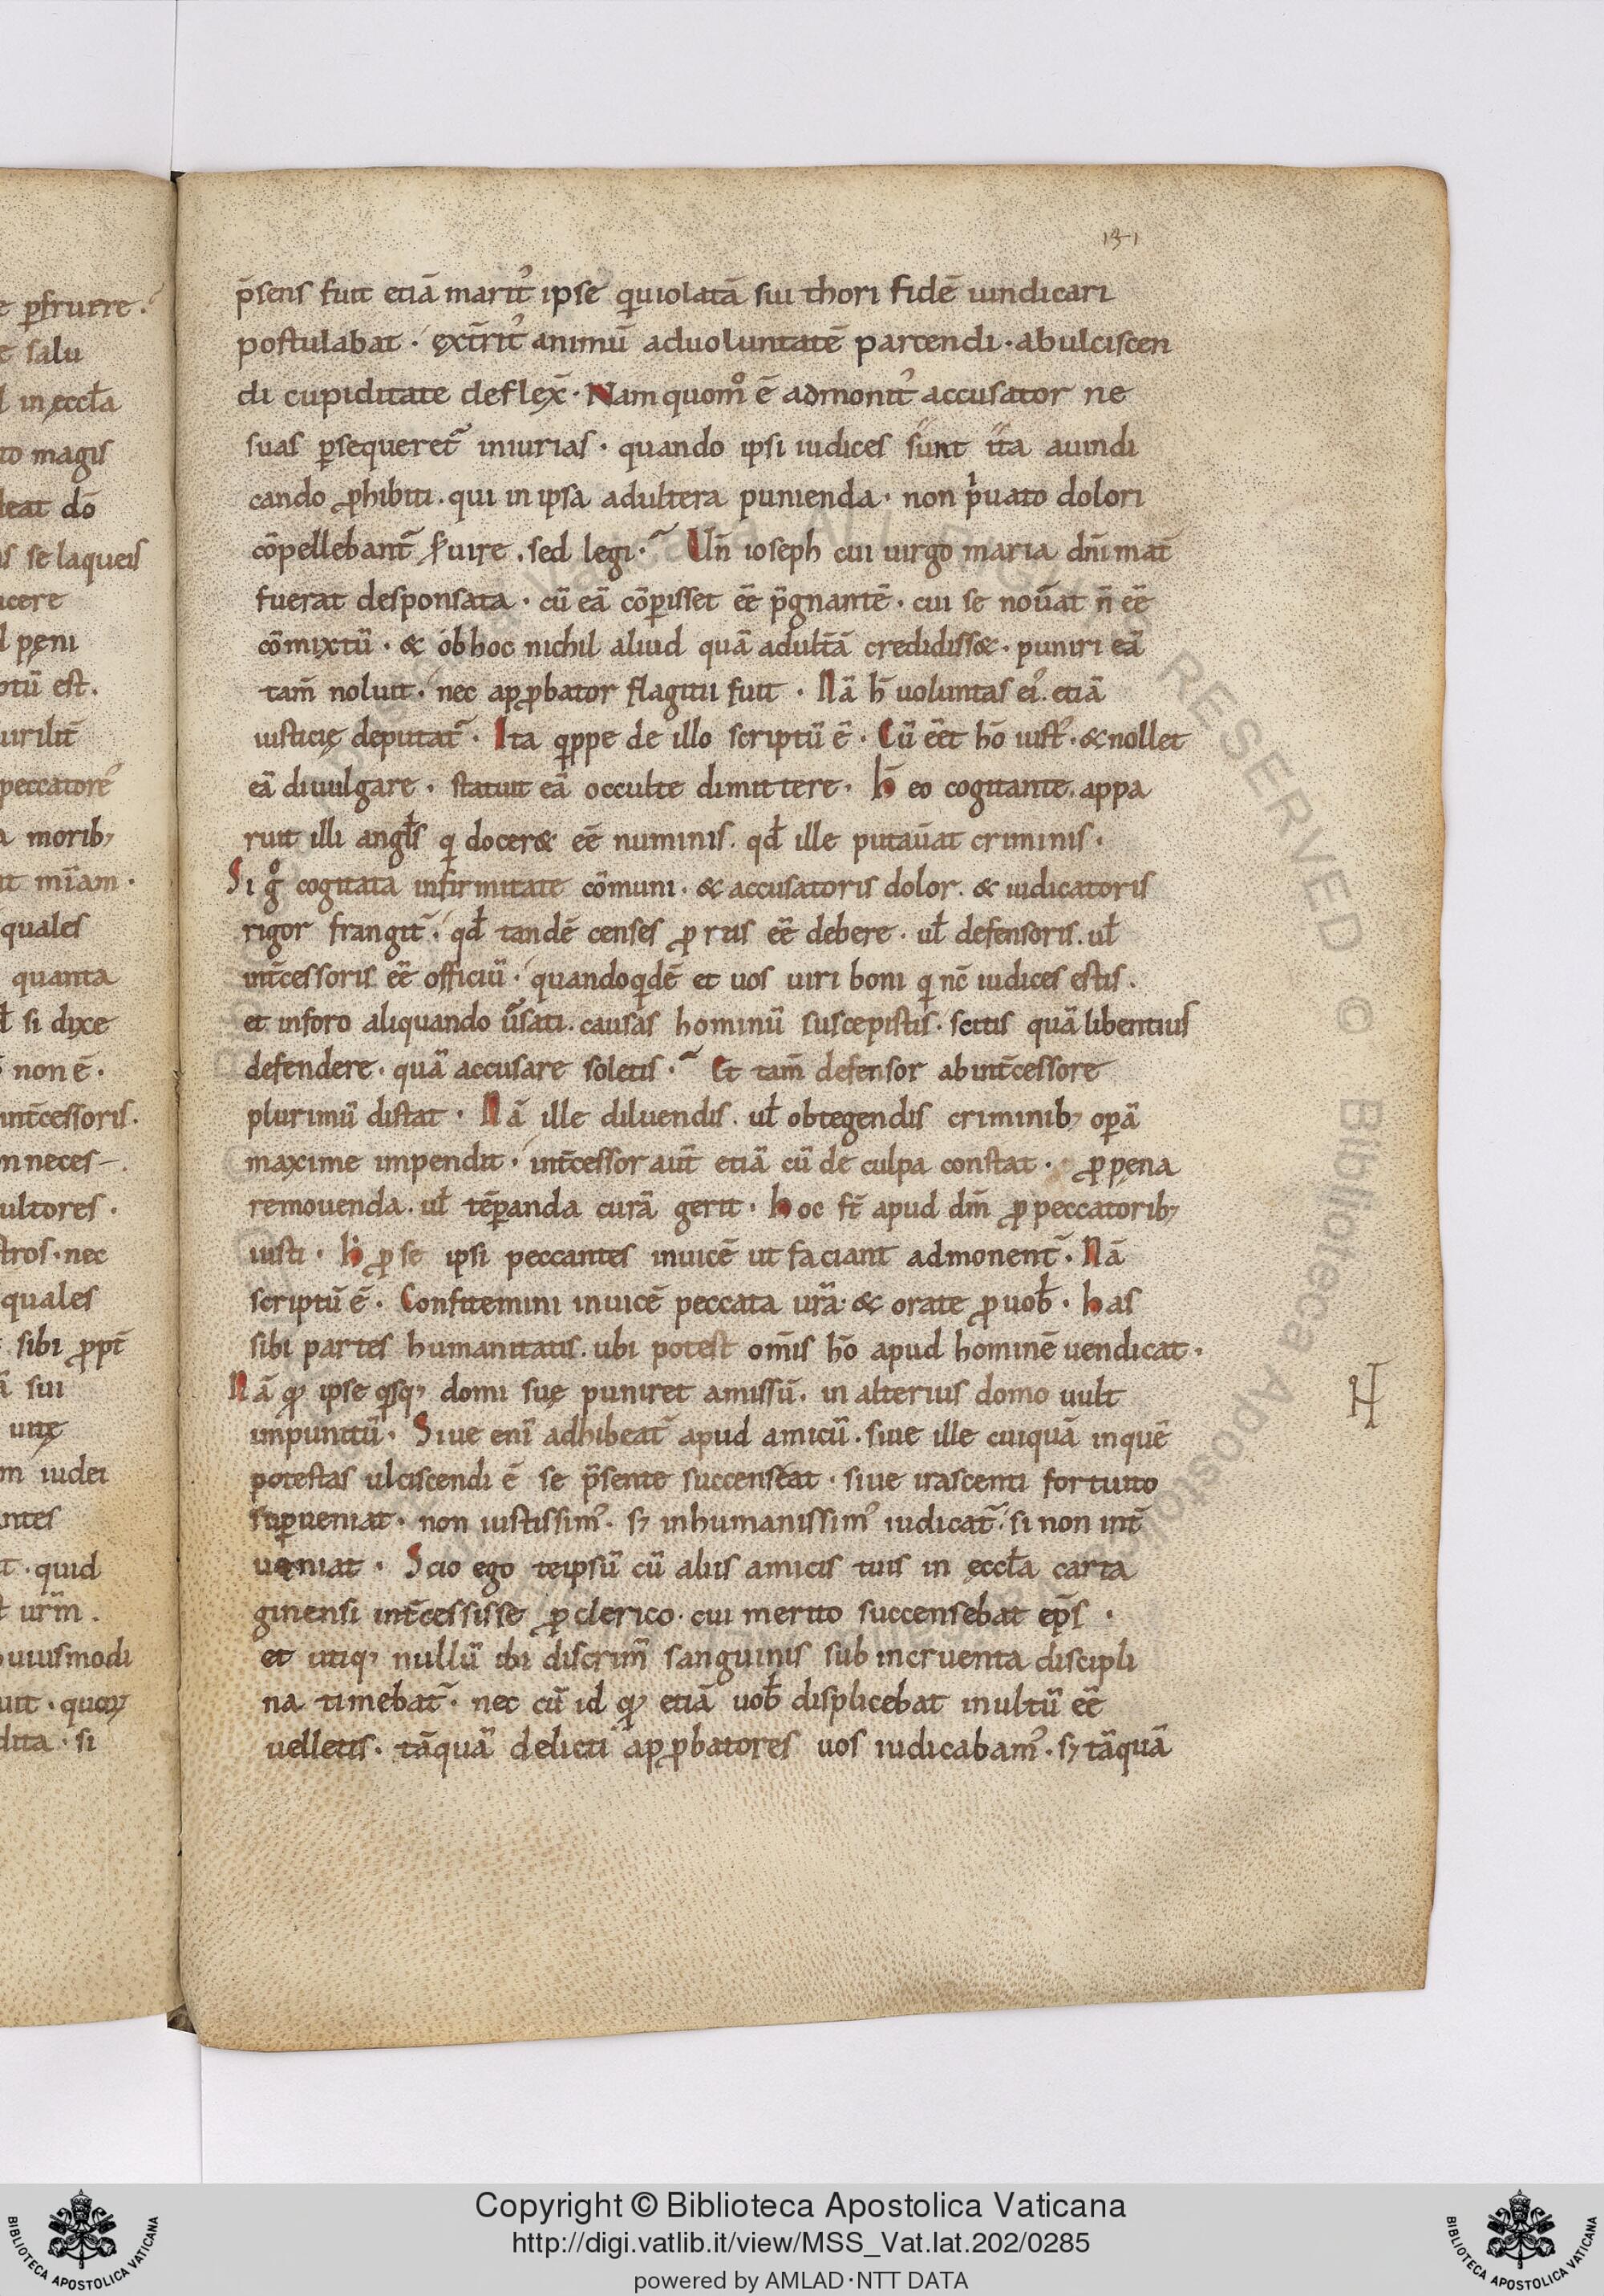 131
p̄sens fuit etiā marit᾽ ipse qͥ uiolatā sui thori fidē uindicari
postulabat · ext̄rit᾽ animū aduoluntatē parcendi · abulciscen
di cupiditate deflex̄ · Nam quom̊ ē admonit᾽ accusator ne
suas ꝑsequeret̃ iniurias · quando ipsi iudices sunt ita auindi
cando ꝓhibiti . qui in ipsa adultera punienda · non pͥuato dolori
cōpellebant̃ ẜuire . sed legi · Uñ ioseph cui uirgo maria dn̄i mat̄
fuerat desponsata · cū eā cōꝑisset eē p̄gnantē · cui se nou̅at n̄ eē
cōmixtū · & ob hoc nichil aliud quā adult̄ā crediiss& · puniri eā
tam̄ noluit · nec apꝓbator flagitii fuit · Nā h̄ uoluntas ei᾽ . etiā
iusticię deputat̃ · Ita qͥppe de illo scriptū ē · Cū eēt hō iust᾽ · & nollet
eā diuulgare · statuit eā occulte dimittere · h̄ eo cogitante . appa
ruit illi angl̄s qͥ docer& eē numinis . qd̄ ille putau̅at criminis ·
Si g̊ cogitata infirmitate cōmuni · & accusatoris dolor . & iudicatoris
rigor frangit̃ · qd̄ tandē censes ꝓ reis eē debere · ul̄ defensoris . ul̄
int̄cessoris eē officiū · quandoqͥdē et uos uiri boni qͥ nc̄ iudices estis .
et inforo aliquando uēsati . causas hominū suscepistis · scitis quā libentius
defendere · quā accusare soletis · Et tam̄ defensor abint̄cessore
plurimū distat · Nā ille diluendis . ul̄ obtegendis criminib; oꝑā
maxime impendit · int̄cessor aut̄ etiā cū de culpa constat · ꝓ pęna
remouenda . ul̄ tēꝑanda curā gerit · hoc ft̄ apud dm̄ ꝓ peccatorib;
iusti · h̄ ꝓ se ipsi peccantes inuicē ut faciant admonent̃ · Nā
scriptū ē · Confitemini inuicē peccata ur̄a · & orate ꝓ uob̄ · has
sibi partes humanitatis . ubi potest om̄is hō apud hominē uendicat ·
Nā qͩ ipse qͥsq; domi suę puniret amissū . in alterius domo uult
impunitū · Siue enī adhibeat̃ apud amicū . siue ille cuiquā inquē
potestas ulciscendi ē se p̄sente succenseat · siue irascenti fortuito
suꝑueniat · non iustissim᾽ . s; inhumanissim᾽ iudicat̃ . si non int̄
ueniat · Scio ego teipsū cū aliis amicis tuis in ęccl̄a carta
ginensi int̄cessisse ꝓ clerico · cui merito succensebat ep̄s ·
et utiq; nullū ibi discrim̄ sanguinis sub incruenta discipli
na timebat̃ · nec cū id qͩ etiā uob̄ displicebat inultū eē
uelletis · tāquā delicti apꝓbatores uos iudicabam᾽ · s; tāquā
Copyright © Biblioteca Apostolica Vaticana
http://digi.vatlib.it/view/MSS_Vat.lat.202/0285
powered by AMLAD·NTT DATA